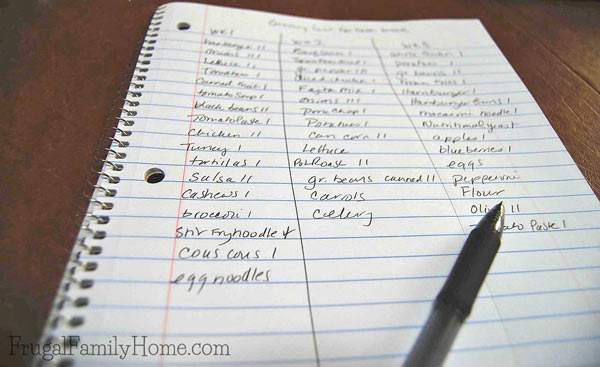 Grocery List for Each Week
WK 1
hamburger 11
onions 11
Lettuce 1
Tomatoes 1
Canned
tomato Soup 1
black beans 11
Tomato Paste 1
Chicken 11
Turkey 1
tortillas 1
Salsa 11
Cashews 1
broccori 1
Stir Fry noodle
COUS COUS 1
egg noodles
WK 2
gr. pepper
Fajita Mix 1
Onions 111
Pork Chop 1
Potatoes 1
Can corn 11
Lettuce
Pot Roast 11
gr. beans canned 11
carrots
Celery
WK 3
potatoes 1
gr. beans 11
Hamburger 1
Hamburger Buns 1
macaroni noodle 1
Nutritional yeast
apples 1
blueberries 1
eggs
pepperoni
Flour
11
Paste 1
FrugalFamilyHome.com